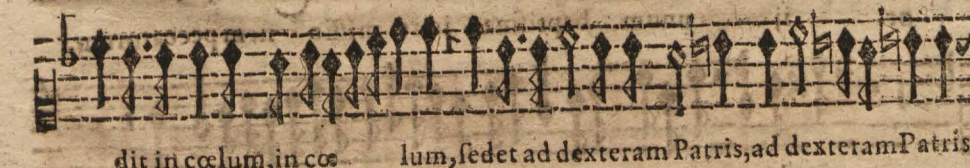 dit in cœlum, in cœ lum, ſedet ad dexteram Patris, ad dexteram Patris